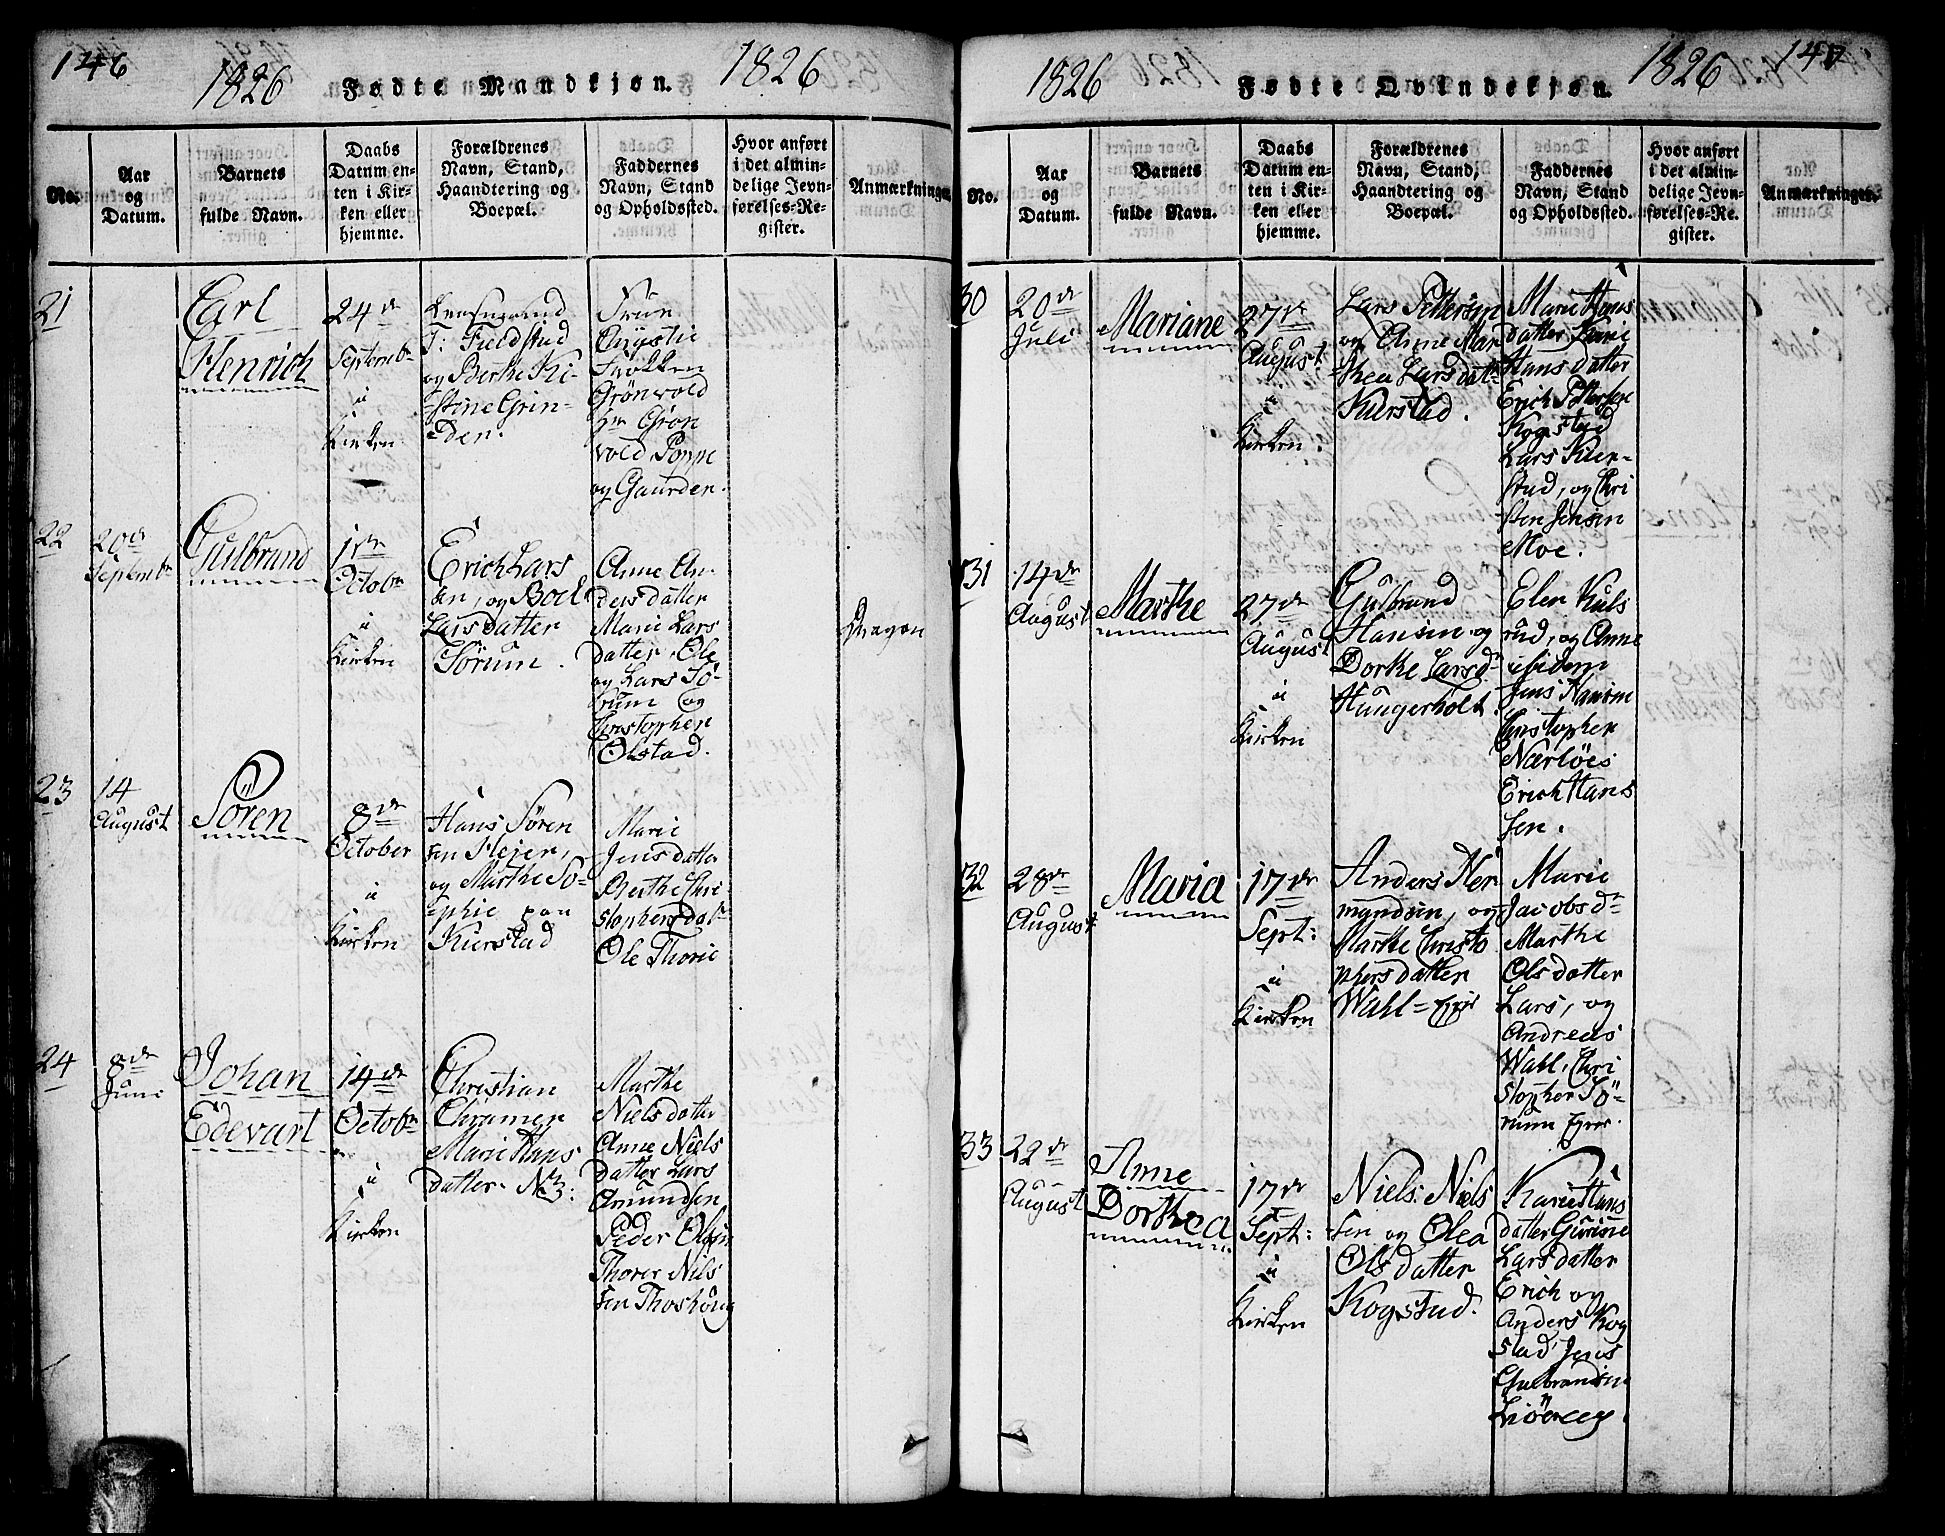 146
1826 Fødte Mandkjøn. 1826
No.
Aar og Datum.
Barnets fulde Navn.
Daabs Datum enten i Kirken eller hjemme.
Forældrenes Navn, Stand, Haandtering og Boepæl.
Faddernes Navn, Stand og Opholdssted.
Hvor anført i det almindelige Jevnførelses-Register.
Anmærkninger.
21
Carl
Henrich
24de
Septembr
i
Kirken
T: Fieldstad
og Berthe Ki-
stine Grin-
den.
Frue
Grönvold
Hr Grön
vold Poppe
og Gaarder.
22
20de
Septembr
Gulbrand
1ste
Octobr
i
Kirken
Erich Lars
en, og Boel
Larsdatter
Sörum.
Anne An-
dersdatter
Marie Lars
datter, Ole
og Lars Sö-
rum og
Christopher
Olstad.
Dragon
23
14
August
Sören
8de
October
i
Kirken
Hans Sören
sen Heier,
og Marthe So-
phie paa
Kierstad
Marie
Jensdatter
Berthe Chri-
stophersdatr
Ole Thorie
24
8de
Juni
Johan
Edevart
14de
Octobr
i
Kirken
Christian
Marie Hans
datter
Marthe
Nielsdatter
Anne Niels
datter Lars
Amundsen
Peder Olsen
Thorer Niels
sen
1826 Fødte Qvindekjøn. 1826
No.
Aar og Datum.
Barnets fulde Navn.
Daabs Datum enten i Kirken eller hjemme.
Forældrenes Navn, Stand, Haandtering og Boepæl.
Faddernes Navn, Stand og Opholdssted.
Hvor anført i det almindelige Jevnførelses-Re. gister.
Anmærkninger.
30
20de
Juli
Mariane
27de
August
i
Kirken.
Lars Pettersen
og Anne Mar
thea Larsdatr
Kierstad.
Marie Hans
datter Karie
Hansdatter
Erich Pettersen
Kogstad
Lars Kier-
stad, og Chri
sten Jensen
Moe.
31
14de
August
Marthe
27de
August
i
Kirken
Gulbrand
Hansen og
Dorthe Larsdr
Haugerholt.
Elen Kuls
rud, og Anne
ibidem
Jens Hansen
Christopher
Nærlöes
Erich Hans
sen.
32
28de
August
Maria
17de
Sept:
i
Kirken
Anders Her
mandsen, og
Marthe Christo
phersdatter
Wahl
Marie
Jacobsdr
Marthe
Olsdatter
Lars, og
Andreas
Wahl, Chri
stopher Sö-
rum
33
22de
August
Anne
Dorthea
17de
Sept:
i
Kirken
Niels Niels
sen og Olea
Olsdatter
Kogstad.
Karie Hans
datter Gurine
Larsdatter
Erich og
Anders Kog
stad, Jens
Gulbrandsen